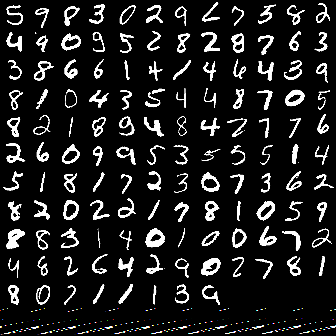 5 9 8 3 0 2 9 2 7 5 8 2
4 9 0 9 5 2 8 2 8 7 6 3
3 8 6 6 1 4 1 4 6 4 3 9
8 1 0 4 3 5 4 4 8 7 0 5
8 2 1 8 9 4 8 4 2 7 7 6
2 6 0 9 9 5 3 5 5 5 1 4
5 1 8 1 7 2 3 0 7 3 6 2
8 2 0 2 2 1 7 8 1 0 5 9
8 8 3 1 4 0 1 0 0 6 7 2
4 8 2 6 4 2 9 0 2 7 8 1
8 0 7 1 1 1 3 9